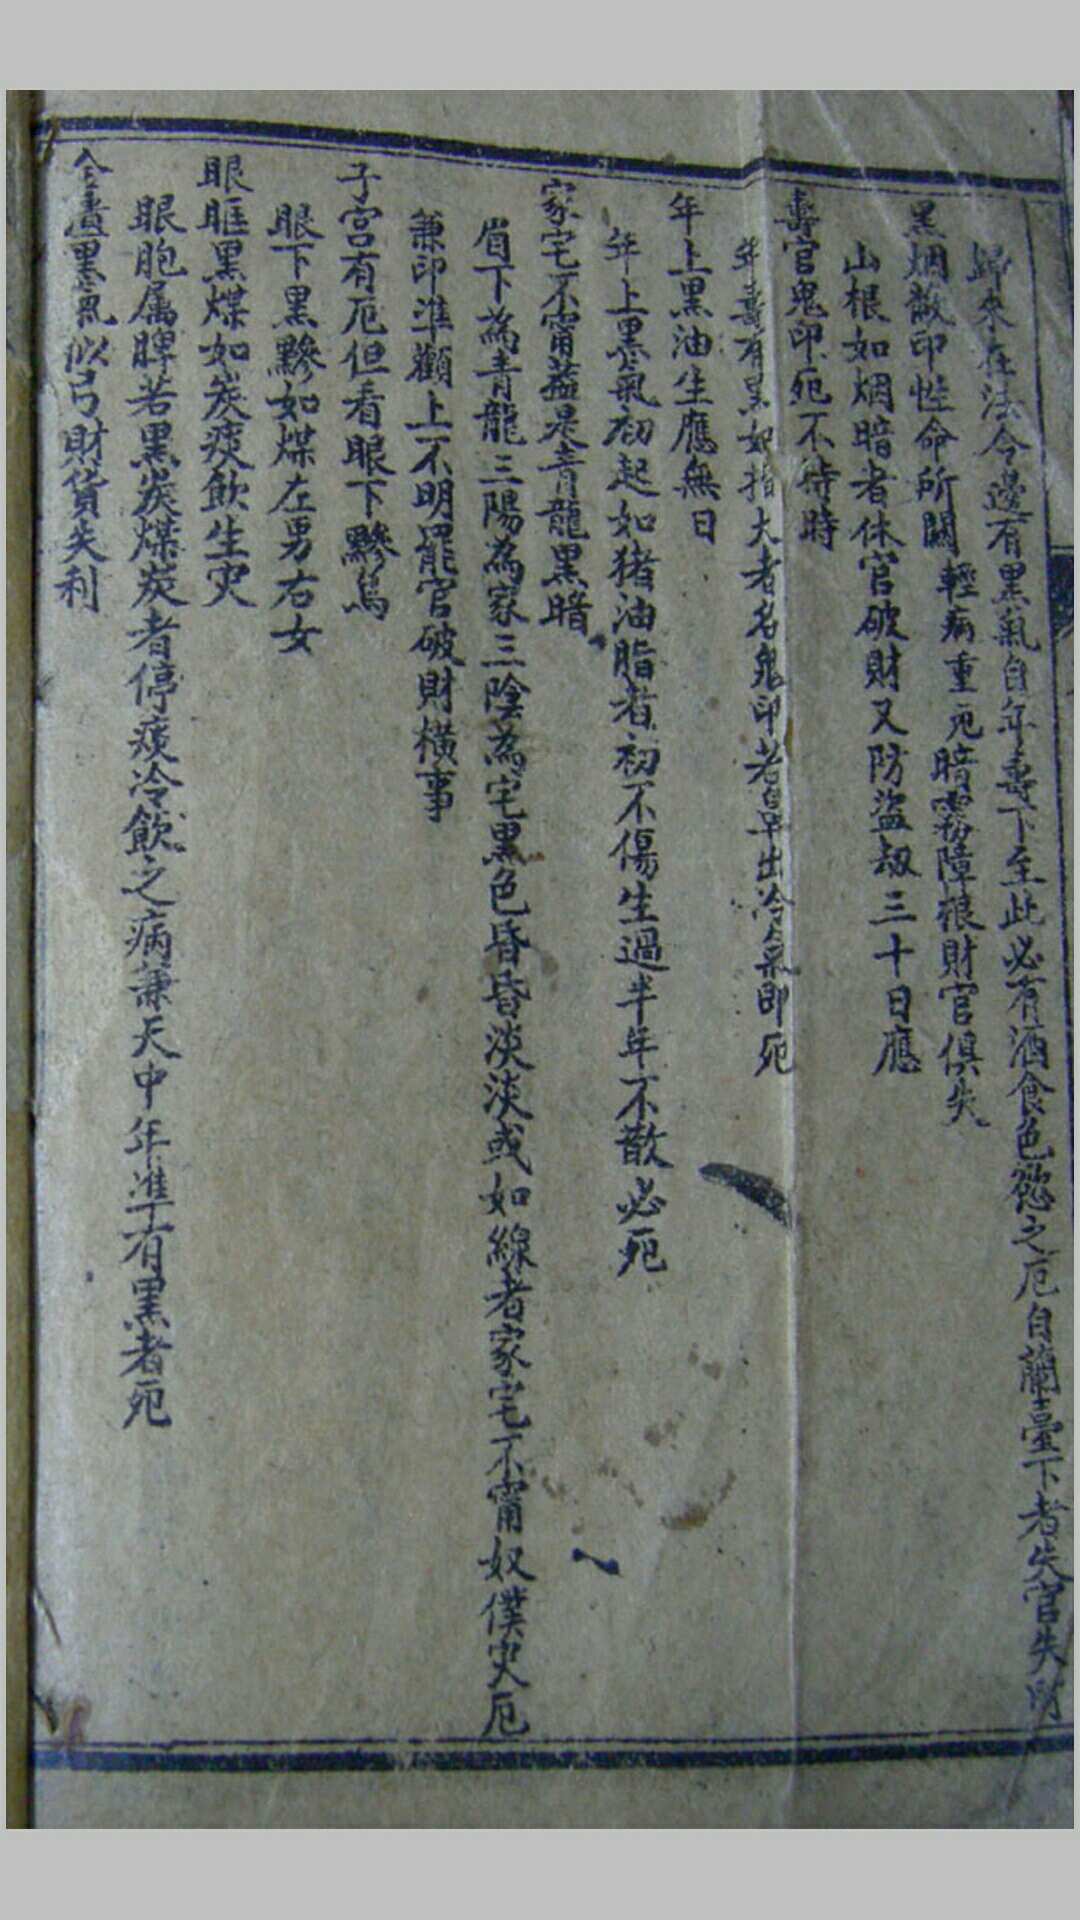 歸來在法令邊有黑氣自年壽下至此必有酒食色慾之厄自蘭臺下者失官失財
黑烟散印性命所關　輕病重死暗霧障根財官俱失
山根如烟暗者休官破財又防盜劫三十日應
壽宮鬼印死不待時
年壽有黑如指大者名鬼印若鼻出冷氣即死
年上黑油生應無日
年上黑氣初起如猪油脂者初不傷生過半年不散必死
家宅不甯葢是青龍黑暗
眉下為青龍三陽為家三陰為宅黑色昏昏淡淡或如線者家宅不甯奴僕灾厄
兼印準顴上不明罷官破財橫事
子宮有厄但看眼下黲烏
眼下黑黲如煤左男右女
眼眶黑煤如炭痰飲生灾
眼胞属脾若黑炭煤炭者停痰冷飲之病兼天中年準有黑者死
黑氣似弓財貨失利